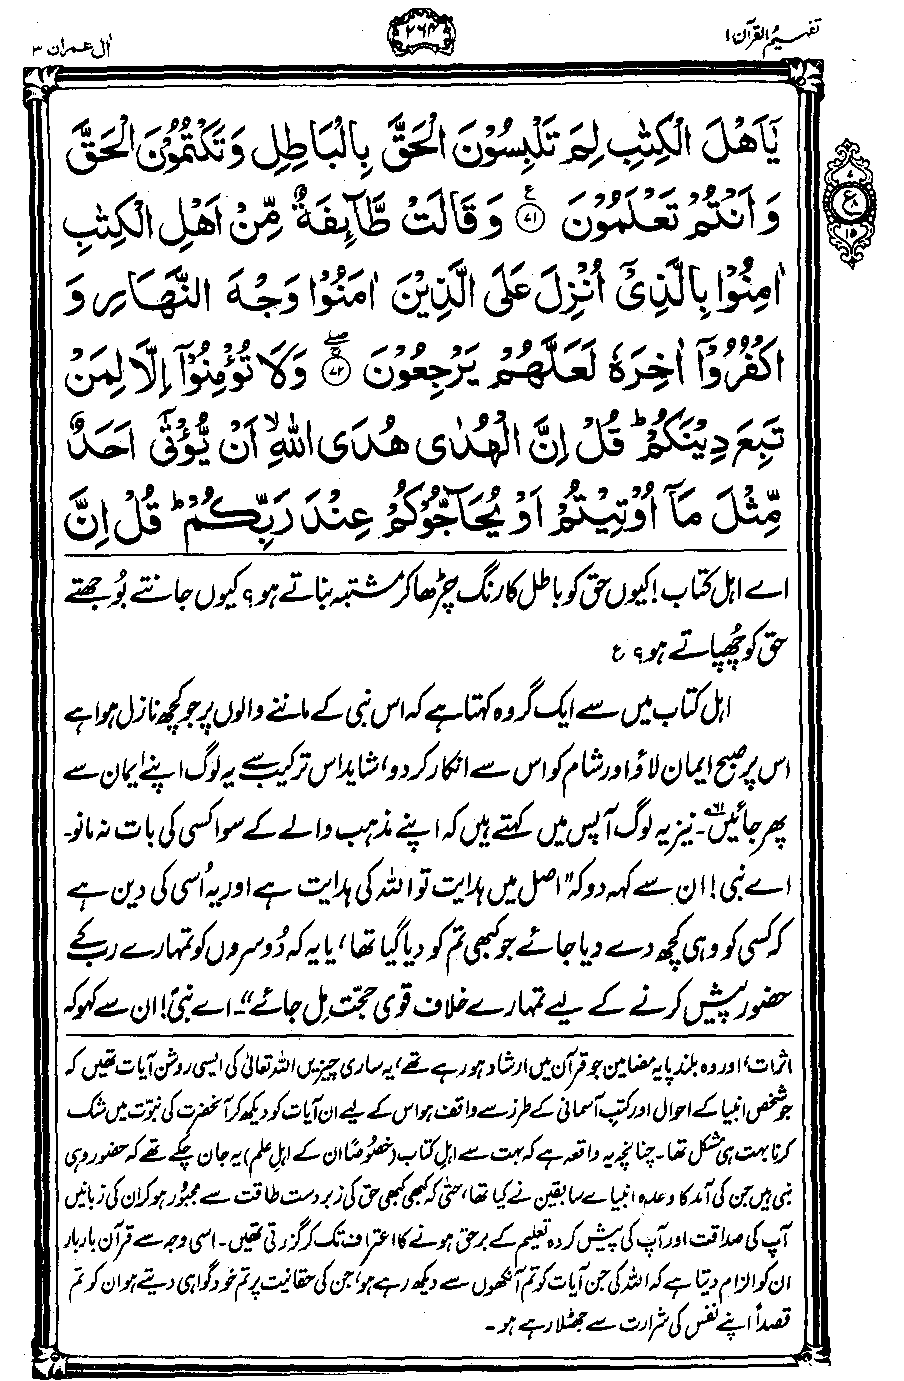 تفہیم القرآن ۱
۲۶۴
اٰل عمران ۳
يٰۤاَهْلَ الْكِتٰبِ لِمَ تَلْبِسُوْنَ الْحَقَّ بِالْبَاطِلِ وَتَكْتُمُوْنَ الْحَقَّ
وَاَنْتُمْ تَعْلَمُوْنَ ﴿۷۱﴾ وَقَالَتْ طَّآئِفَةٌ مِّنْ اَهْلِ الْكِتٰبِ
اٰمِنُوْا بِالَّذِيْۤ اُنْزِلَ عَلَى الَّذِيْنَ اٰمَنُوْا وَجْهَ النَّهَارِ وَ
اكْفُرُوْۤا اٰخِرَهٗ لَعَلَّهُمْ يَرْجِعُوْنَ ﴿۷۲﴾ وَلَا تُؤْمِنُوْۤا اِلَّا لِمَنْ
تَبِعَ دِيْنَكُمْ ؕ قُلْ اِنَّ الْهُدٰى هُدَى اللّٰهِ ۙ اَنْ يُّؤْتٰۤى اَحَدٌ
مِّثْلَ مَاۤ اُوْتِيْتُمْ اَوْ يُحَآجُّوْكُمْ عِنْدَ رَبِّكُمْ ؕ قُلْ اِنَّ
ع
۸
۱۵
اے اہل کتاب! کیوں حق کو باطل کا رنگ چڑھا کر مشتبہ بناتے ہو؟ کیوں جانتے بُوجھتے
حق کو چُھپاتے ہو؟ ع
اہل کتاب میں سے ایک گروہ کہتا ہے کہ اس نبی کے ماننے والوں پر جو کچھ نازل ہوا ہے
اس پر صبح ایمان لاؤ اور شام کو اس سے انکار کر دو، شاید اس ترکیب سے یہ لوگ اپنے ایمان سے
پھر جائیں۔ نیز یہ لوگ آپس میں کہتے ہیں کہ اپنے مذہب والے کے سوا کسی کی بات نہ مانو۔
اے نبی! ان سے کہہ دو کہ "اصل میں ہدایت تو اللہ کی ہدایت ہے اور یہ اُسی کی دین ہے
کہ کسی کو وہی کچھ دے دیا جائے جو کبھی تم کو دیا گیا تھا، یا یہ کہ دُوسروں کو تمہارے رب کے
حضور پیش کرنے کے لیے تمہارے خلاف قوی حجت مِل جائے"۔ اے نبی! ان سے کہو کہ
اثرات، اور وہ بلند پایہ مضامین جو قرآن میں ارشاد ہو رہے تھے، یہ ساری چیزیں اللہ تعالیٰ کی ایسی روشن آیات تھیں کہ
جو شخص انبیا کے احوال اور کتبِ آسمانی کے طرز سے واقف ہو اس کے لیے ان آیات کو دیکھ کر آنحضرت کی نبوّت میں شک
کرنا بہت ہی مشکل تھا۔ چنانچہ یہ واقعہ ہے کہ بہت سے اہلِ کتاب (خصُوصًا ان کے اہلِ علم) یہ جان چکے تھے کہ حضور وہی
نبی ہیں جن کی آمد کا وعدہ انبیاے سابقین نے کیا تھا، حتٰی کہ کبھی کبھی حق کی زبردست طاقت سے مجبُور ہو کر ان کی زبانیں
آپ کی صداقت اور آپ کی پیش کردہ تعلیم کے برحق ہونے کا اعتراف تک کر گزرتی تھیں۔ اسی وجہ سے قرآن بار بار
ان کو الزام دیتا ہے کہ اللہ کی جن آیات کو تم آنکھوں سے دیکھ رہے ہو، جن کی حقانیت پر تم خود گواہی دیتے ہو ان کو تم
قصداً اپنے نفس کی شرارت سے جھٹلا رہے ہو۔